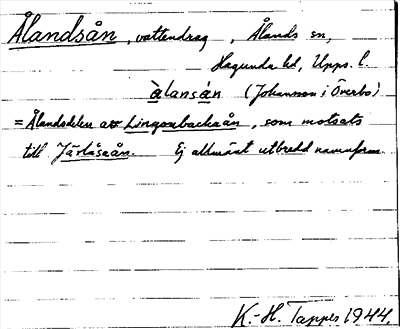 Ålandsån, vattendrag, Ålands sn,
Hagunda hd, Upps. l.
àlansán (Johansson i Överbo)
= Ålandsdelen av Lingonbackaån, som motsats
till Järlåsaån. Ej allmänt utbredd namnform.
K.-H. Tapper 1944.